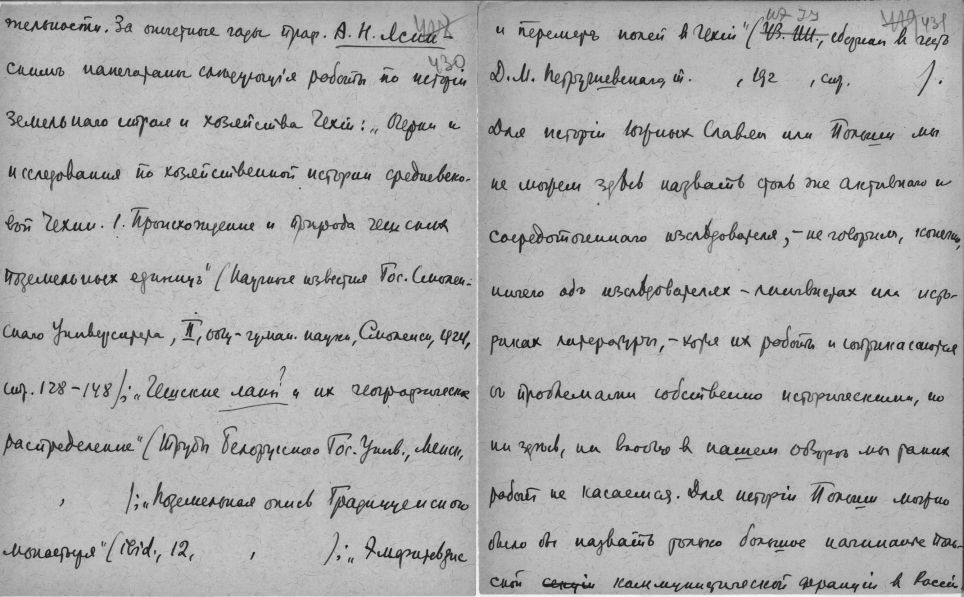 428
430
тельности. За отчетные годы проф. А. Н. Ясин-
ским напечатаны следующія работы по исторіи
земельнаго строя и хозяйства Чехіи: „Очерки и
изследования по хозяйственной истории средневеко-
вой Чехии. 1. Происхождение и природа чешских
поземельных единиц" (Научные известия Гос. Смолен-
скаго Университета, II, общ-гуман. науки, Смоленск, 1924,
стр. 128-148); „Чешские ланы? и их географическое
распределение" (Труды Белорусскаго Гос. Унив., Менск,
, ); „Поземельная опись Градищенского
монастыря" (ibid., 12, , ); „
429 431
и перемер полей в Чехіи" ( сборник в честь
Д. М. Петрушевскаго, т. , 192 , стр. ).
Для исторіи Южных Славян или Польши мы
не можем здѣсь назвать столь же активнаго и
сосредоточеннаго изслѣдователя, - не говорим, конечно,
ничего об изслѣдователях - лингвистах или исто-
риках литературы, - хотя их работы и соприкасаются
съ проблемами собственно историческими, но
ни здѣсь, ни вообще в нашем обзорѣ мы таких
работ не касаемся. Для исторіи Польши можно
было бы назвать только большое начинание Поль-
ской секціи коммунистической фракціи в Россіи.